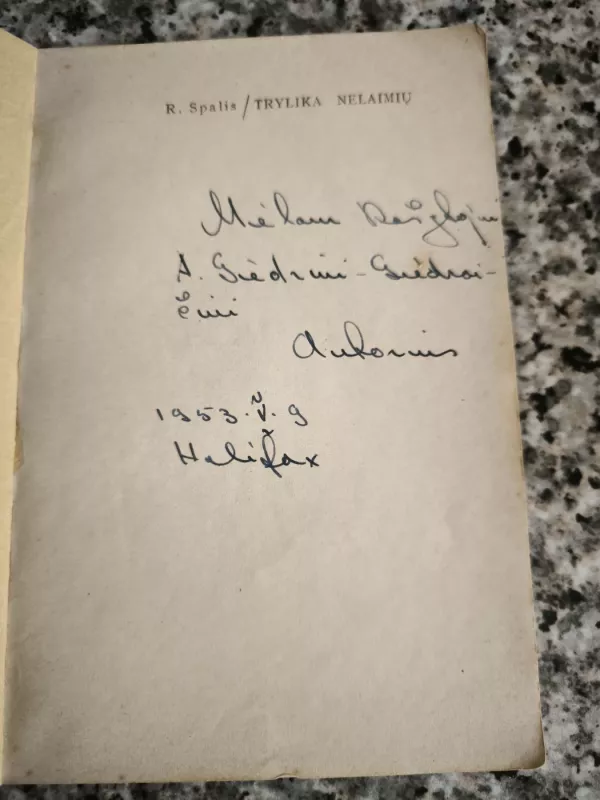 R. Spalis / TRYLIKA NELAIMIŲ
Mielam
A. Giedriui - Giedrai-
čiui
Autorius
1953. V. 9
Halifax